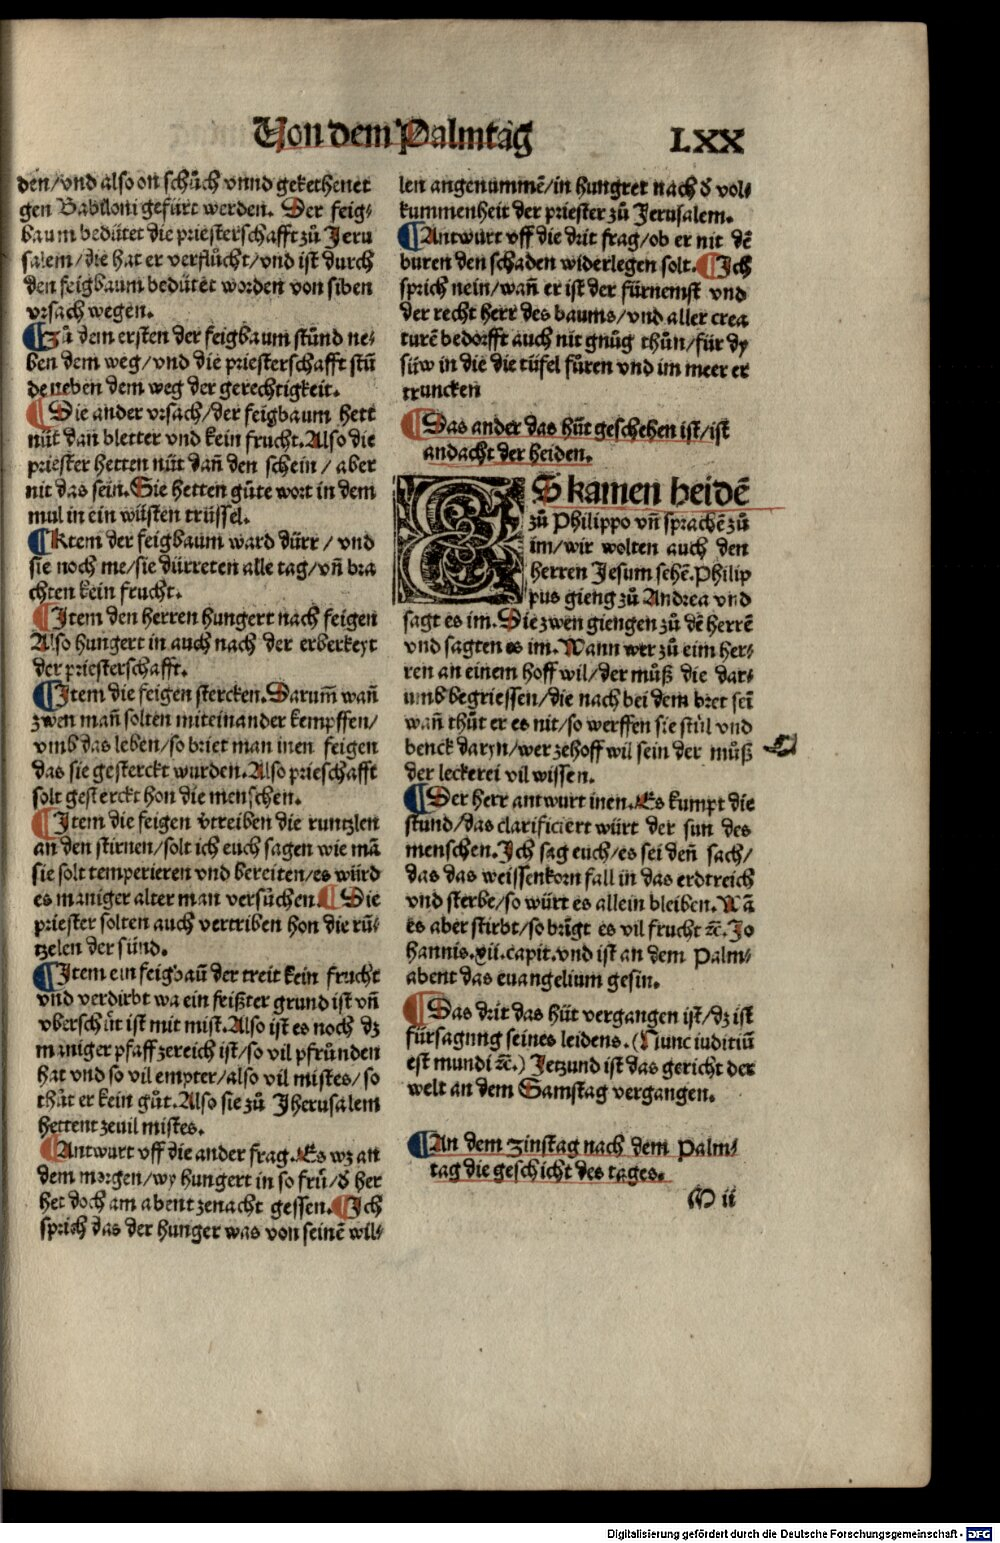 Von dem Palmtag
LXX
den/vnd also on schůch vnnd gekethenet
gen Babiloni gefürt werden. Der feig⸗
baum bedütet die priesterschafft zů Jeru
salem/die hat er verflůcht/vnd ist durch
den feigbaum bedütet worden von siben
vrsach wegen.
¶Zů dem ersten der feigbaum stůnd ne⸗
ben dem weg/vnd die priesterschafft stů
de neben dem weg der gerechtigkeit.
¶Die ander vrsach/der feigbaum hett
nüt dañ bletter vnd kein frucht. Also die
priester hetten nüt dañ den schein/aber
nit das sein. Sie hetten gůte wort in dem
mul in ein wůsten trüssel.
¶Item der feigbaum ward dürr/vnd
sie noch me/sie dürreten alle tag/vñ bra
chten kein frucht.
¶Item den herren hungert nach feigen
Also hungert in auch nach der erberkeyt
der priesterschafft.
¶Item die feigen stercken. Darum̄ wañ
zwen man̄ solten miteinander kempffen/
vmb das leben/so briet man inen feigen
das sie gesterckt wurden. Also prieschafft
solt gesterckt hon die menschen.
¶Item die feigen v̄treiben die runtzlen
an den stirnen/solt ich euch sagen wie mā
sie solt temperieren vnd bereiten/es würd
es maniger alter man versůchen. ¶Die
priester solten auch vertriben hon die rū⸗
tzelen der sünd.
¶Item ein feigbaū der treit kein frucht
vnd verdirbt wa ein feißter grund ist vñ
vberschüt ist mit mist. Also ist es noch dz
maniger pfaff zereich ist/so vil pfrůnden
hat vnd so vil empter/also vil mistes/so
thůt er kein gůt. Also sie zů Jherusalem
hettent zeuil mistes.
¶Antwurt vff die ander frag. Es wz an
dem morgen/wy hungert in so frů/d̄ her
het doch am abent zenacht gessen. ¶Ich
sprich das der hunger was von seinē wil⸗
len angenummē/in hungret nach d̄ vol⸗
kummenheit der priester zů Jerusalem.
¶Antwurt vff die drit frag/ob er nit dē
buren den schaden widerlegen solt. ¶Ich
sprich nein/wañ er ist der fürnemst vnd
der recht herr des baums/vnd aller crea
turē bedorfft auch nit gnůg thůn/für dy
süw in die die tüfel fůren vnd im meer er
truncken
¶Das ander das hüt geschehen ist/ist
andacht der heiden.
ES kamen heidē
zů Philippo vñ sprachē zů
im/wir wolten auch den
herren Jesum sehē. Philip
pus gieng zů Andrea vnd
sagt es im. Die zwen giengen zů dē herrē
vnd sagten es im. Wann wer zů eim her⸗
ren an einem hoff wil/der můß die dar⸗
umb begriessen/die nach bei dem bret sei
wañ thůt er es nit/so werffen sie stůl vnd
benck daryn/wer zehoff wil sein der můß
der leckerei vil wissen.
¶Der herr antwurt inen. Es kumpt die
stund/das clarificiert würt der sun des
menschen. Ich sag euch/es sei den̄ sach/
das das weissenkorn fall in das erdtreich
vnd sterbe/so würt es allein bleiben. Wā
es aber stirbt/so brīgt es vil frucht ⁊c̄. Jo
hannis.xii.capit. vnd ist an dem Palm⸗
abent das euangelium gesin.
¶Das drit das hüt vergangen ist/dz ist
fürsagung seines leidens. (Nunc iuditiū
est mundi ⁊c̄.) Jetzund ist das gericht der
welt an dem Samstag vergangen.
¶An dem zinstag nach dem Palm⸗
tag die geschicht des tages.
M ii
Digitalisierung gefördert durch die Deutsche Forschungsgemeinschaft - DFG